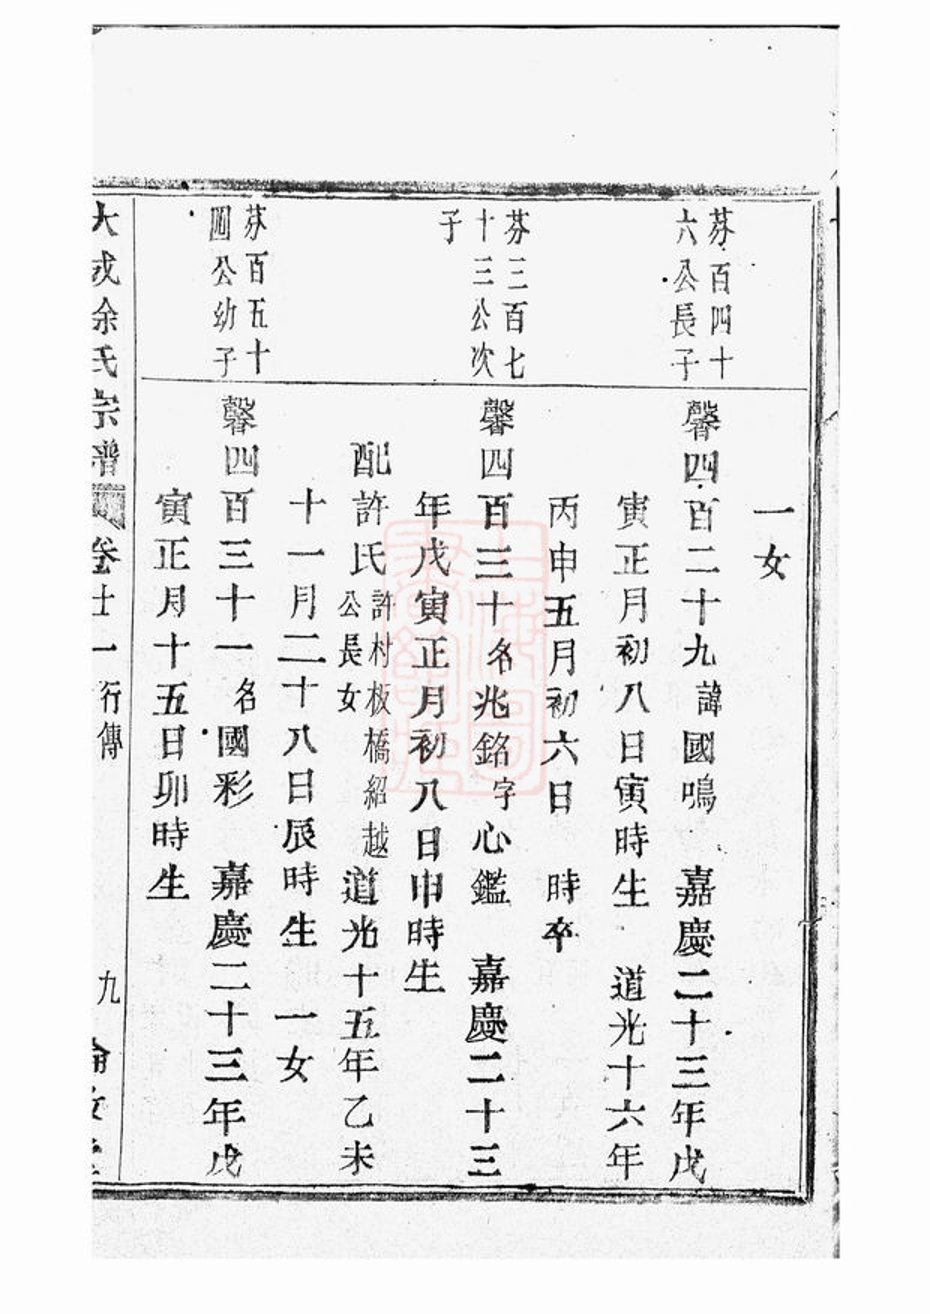 一女
芬百四十
六公長子
馨四百二十九諱國鳴 嘉慶二十三年戊
寅正月初八日寅時生 道光十六年
丙申五月初六日 時卒
芬三百七
十三公次
子
馨四百三十名兆銘字心鑑 嘉慶二十三
年戊寅正月初八日申時生
配許氏許村板橋紹越公長女道光十五年乙未
十一月二十八日辰時生 一女
芬百五十
四公幼子
馨四百三十一名國彩 嘉慶二十三年戊
寅正月十五日卯時生
大成徐氏宗譜 卷十一 行傳 九